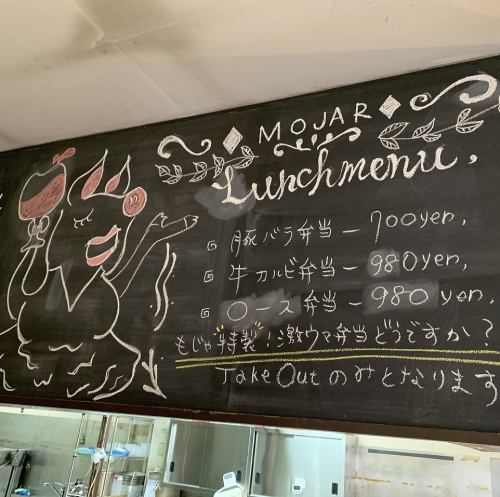 MOJAR
Lunchmenu,
豚バラ弁当 - 700yen,
牛カルビ弁当 - 980yen,
ロース弁当 - 980yen,
もじゃ特製!激ウマ弁当どうですか?
Take Outのみとなります